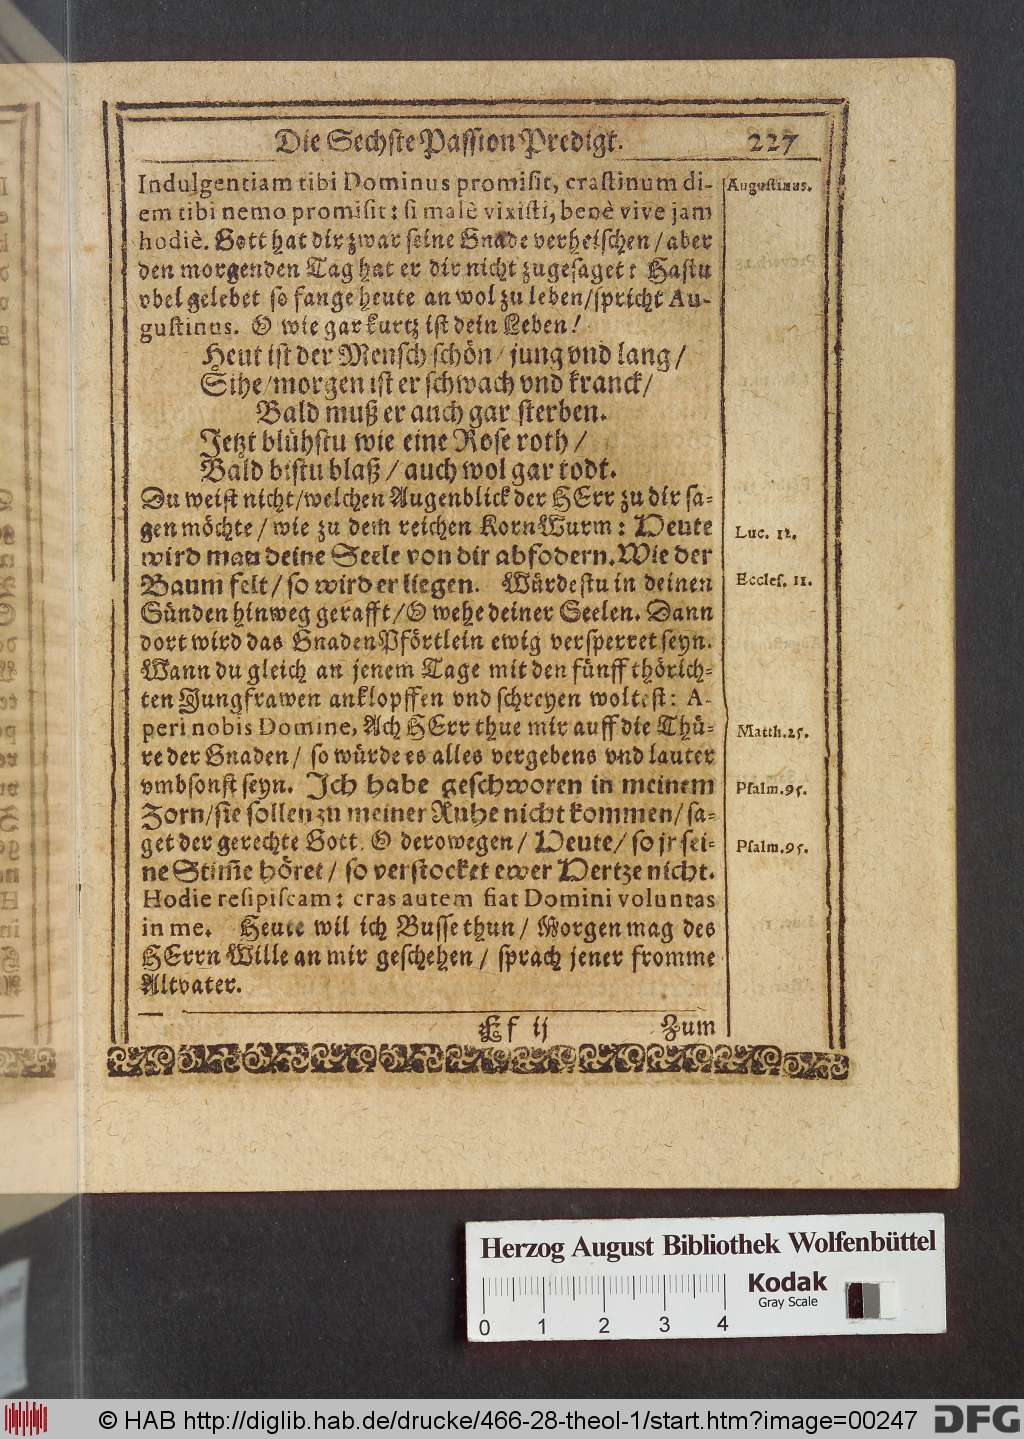 Die Sechste Passion Predigt. 227
Indulgentiam tibi Dominus promisit, crastinum di-
em tibi nemo promisit: si malè vixisti, benè vive jam
hodiè. Gott hat dir zwar seine Gnade verheischen / aber
den morgenden Tag hat er dir nicht zugesaget: Hastu
vbel gelebet so fange heute an wol zu leben/spricht Au-
gustinus. O wie gar kurtz ist dein Leben!
Heut ist der Mensch schön / jung vnd lang /
Sihe/morgen ist er schwach vnd kranck/
Bald muß er auch gar sterben.
Jetzt blühstu wie eine Rose roth /
Bald bistu blaß / auch wol gar todt.
Du weist nicht/welchen Augenblick der HErr zu dir sa-
gen möchte / wie zu dem reichen KornWurm: Heute
wird man deine Seele von dir abfodern. Wie der
Baum felt / so wird er liegen. Würdestu in deinen
Sünden hinweg gerafft / O wehe deiner Seelen. Dann
dort wird das GnadenPförtlein ewig versperret seyn.
Wann du gleich an jenem Tage mit den fünff thörich-
ten Jungfrawen anklopffen vnd schreyen woltest: A-
peri nobis Domine, Ach HErr thue mir auff die Thü-
re der Gnaden / so würde es alles vergebens vnd lauter
vmbsonst seyn. Ich habe geschworen in meinem
Zorn/sie sollen zu meiner Ruhe nicht kommen / sa-
get der gerechte Gott. O derowegen / Heute / so jr sei-
ne Stim̃e höret / so verstocket ewer Hertze nicht.
Hodie resipiscam: cras autem fiat Domini voluntas
in me. Heute wil ich Busse thun / Morgen mag des
HErrn Wille an mir geschehen / sprach jener fromme
Altvater.
Ff ij Zum
Augustinus.
Luc. 12.
Eccles. 11.
Matth. 25.
Psalm. 95.
Psalm. 95.
Herzog August Bibliothek Wolfenbüttel
Kodak
Gray Scale
0 1 2 3 4
© HAB http://diglib.hab.de/drucke/466-28-theol-1/start.htm?image=00247
DFG